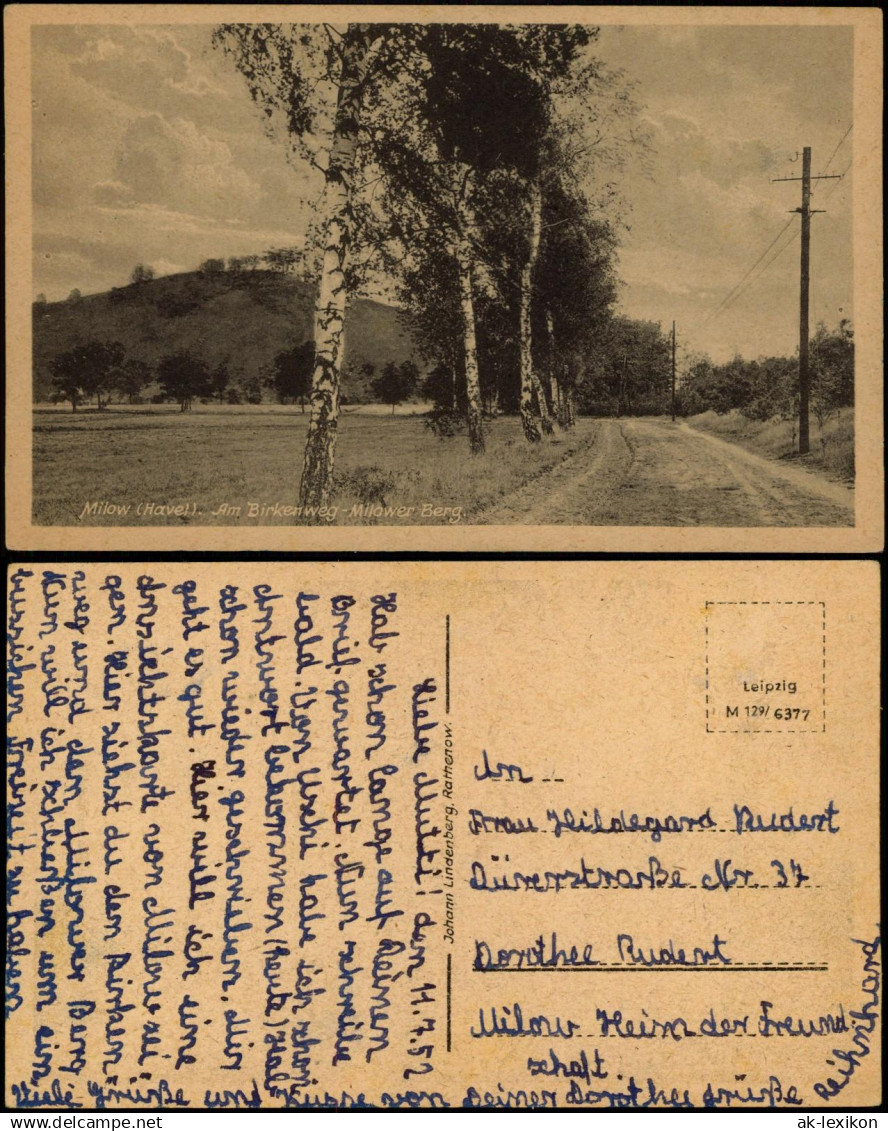 Milow (Havel). Am Birkenweg-Milower Berg.
Liebe Mutti! den 11.7.52
Hab schon lange auf Deinen
Brief gewartet. Nun schreibe
bald. Von Uschi habe ich schon
Antwort bekommen (heute) Hab
schon wieder geschrieben. Mir
geht es gut. Hier will ich eine
Ansichtskarte von Milow
gen. Hier siehst du den Birken
weg und den Milower Berg
Nun will ich schließen um ein
bisschen Freizeit zu haben
Viele Grüße und Küsse von Deiner Dorothee grüße
Reihnhard
Johann Lindenberg, Rathenow.
Leipzig
M 129/ 6377
An
Frau Hildegard Rudert
Dürerstraße Nr. 37
Dorothee Rudert
Milow Heim der Freund-
schaft.
ak-lexikon